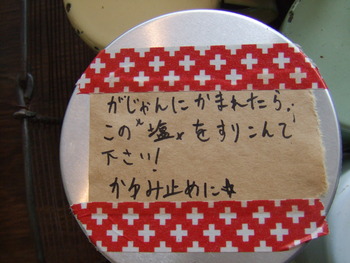 がじゃんにかまれたら、
この"塩"をすりこんで
下さい!
かゆみ止めに☆